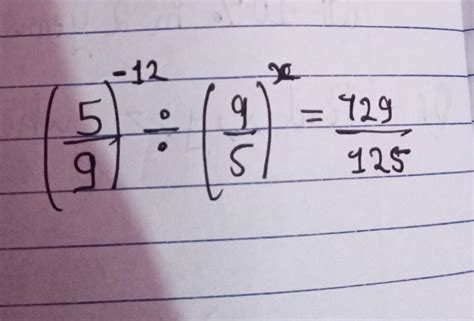 (5/9)^-12 ÷ (9/5)^x = 729/125